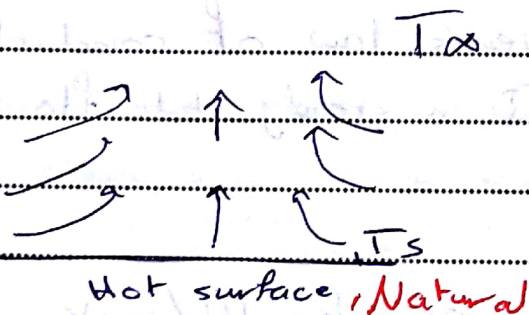 T∞
Ts
Hot surface, Natural